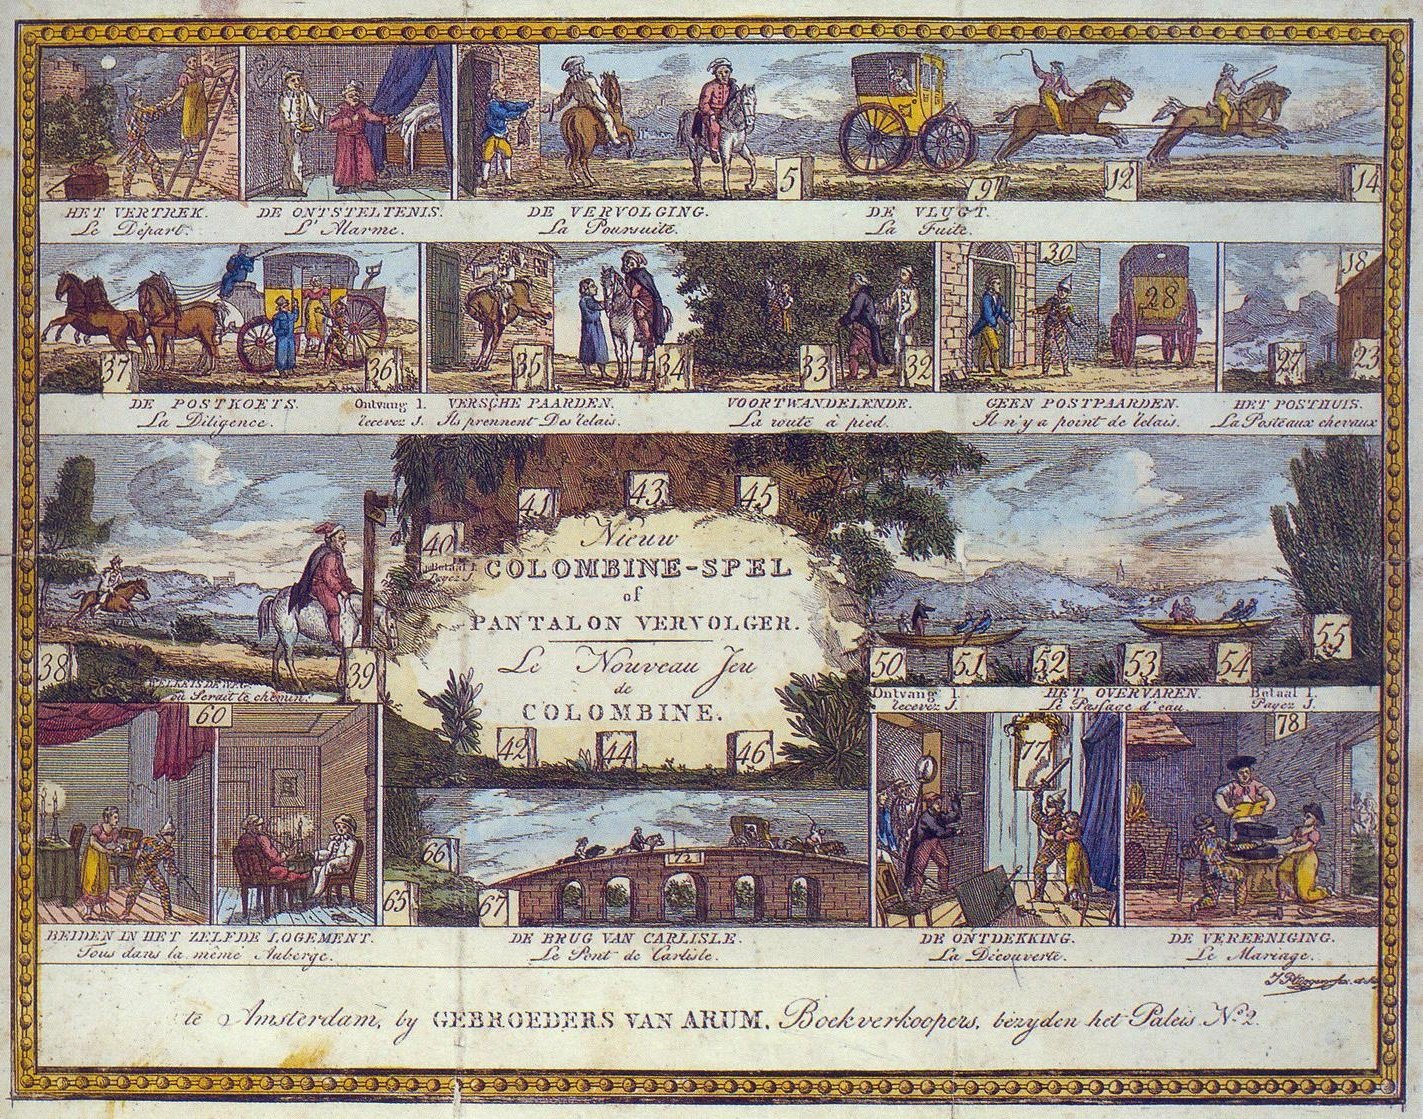 5
9
12
14
HET VERTREK.
Le Départ.
DE ONTSTELTENIS.
L'Alarme.
DE VERVOLGING.
La Poursuite.
DE VLUGT.
La Fuite.
30
28
18
37
36
35
34
33
32
27
23
DE POSTKOETS.
La Diligence.
Ontvang 1.
recevez J.
VERSCHE PAARDEN.
Ils prennent Des relais.
VOORTWANDELENDE.
La route à pied.
GEEN POSTPAARDEN.
Il n'y a point de relais.
HET POSTHUIS.
La Poste aux chevaux
41
43
45
40
Betaal 1.
Payez J.
Nieuw
COLOMBINE-SPEL
of
PANTALON VERVOLGER.
Le Nouveau Jeu
de
COLOMBINE.
42
44
46
38
39
ou Serait le chemin.
50
51
52
53
54
55
Ontvang 1.
recevez J.
HET OVERVAREN.
Le Passage d'eau.
Betaal 1.
Payez J.
60
66
65
67
72
77
78
BEIDEN IN HET ZELFDE LOGEMENT.
Tous dans la même Auberge.
DE BRUG VAN CARLISLE.
Le Pont de Carlisle.
DE ONTDEKKING.
La Découverte.
DE VEREENIGING.
Le Mariage.
te Amsterdam, by GEBROEDERS VAN ARUM, Boekverkoopers, bezyden het Paleis N.º 2.